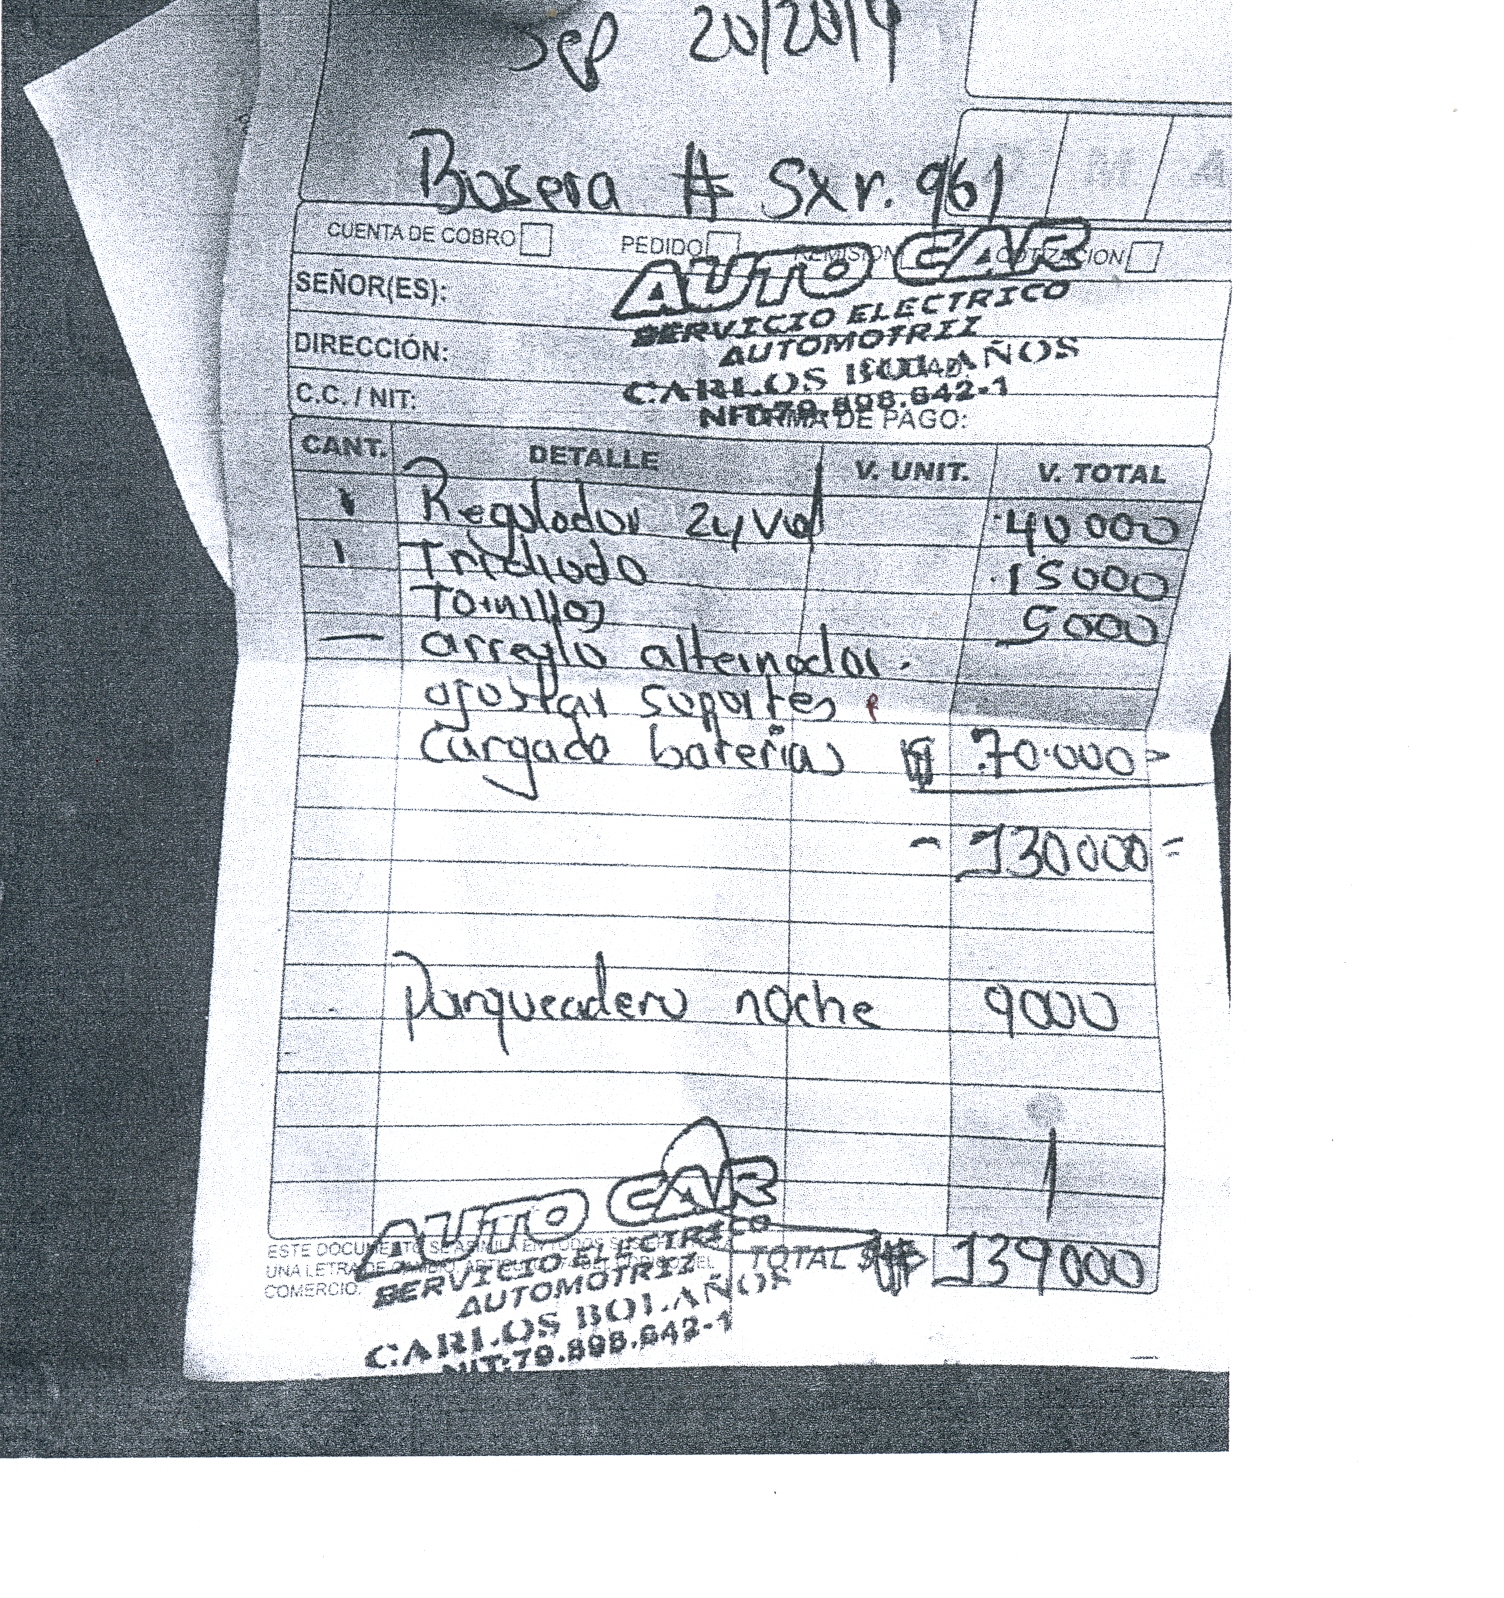 Sep 20/2019
Biosera # Sxr. 961
CUENTA DE COBRO PEDIDO REMISION COTIZACION
AUTO CAR
SERVICIO ELECTRICO
AUTOMOTRIZ
CARLOS BOLAÑOS
79.898.642-1
SEÑOR(ES):
DIRECCIÓN:
C.C. / NIT:
FORMA DE PAGO:
CANT. DETALLE V. UNIT. V. TOTAL
1 Regulador 24 Vol 40000
1 15000
Tornillos 5000
— arreglo alternador.
ajustar soportes
Cargado baterias 70.000
- 130000 =
Parqueadero noche 9000
ESTE DOCUMENTO SE ASIMILA EN TODOS
UNA LETRA DE CAMBIO. DEL
COMERCIO.
TOTAL $ 139000
AUTO CAR
SERVICIO ELECTRICO
AUTOMOTRIZ
CARLOS BOLAÑOS
NIT:79.898.642-1